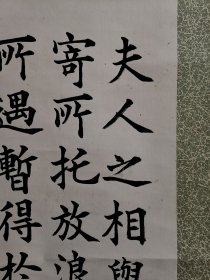 夫人之相與
寄所托放浪
所遇暫得於